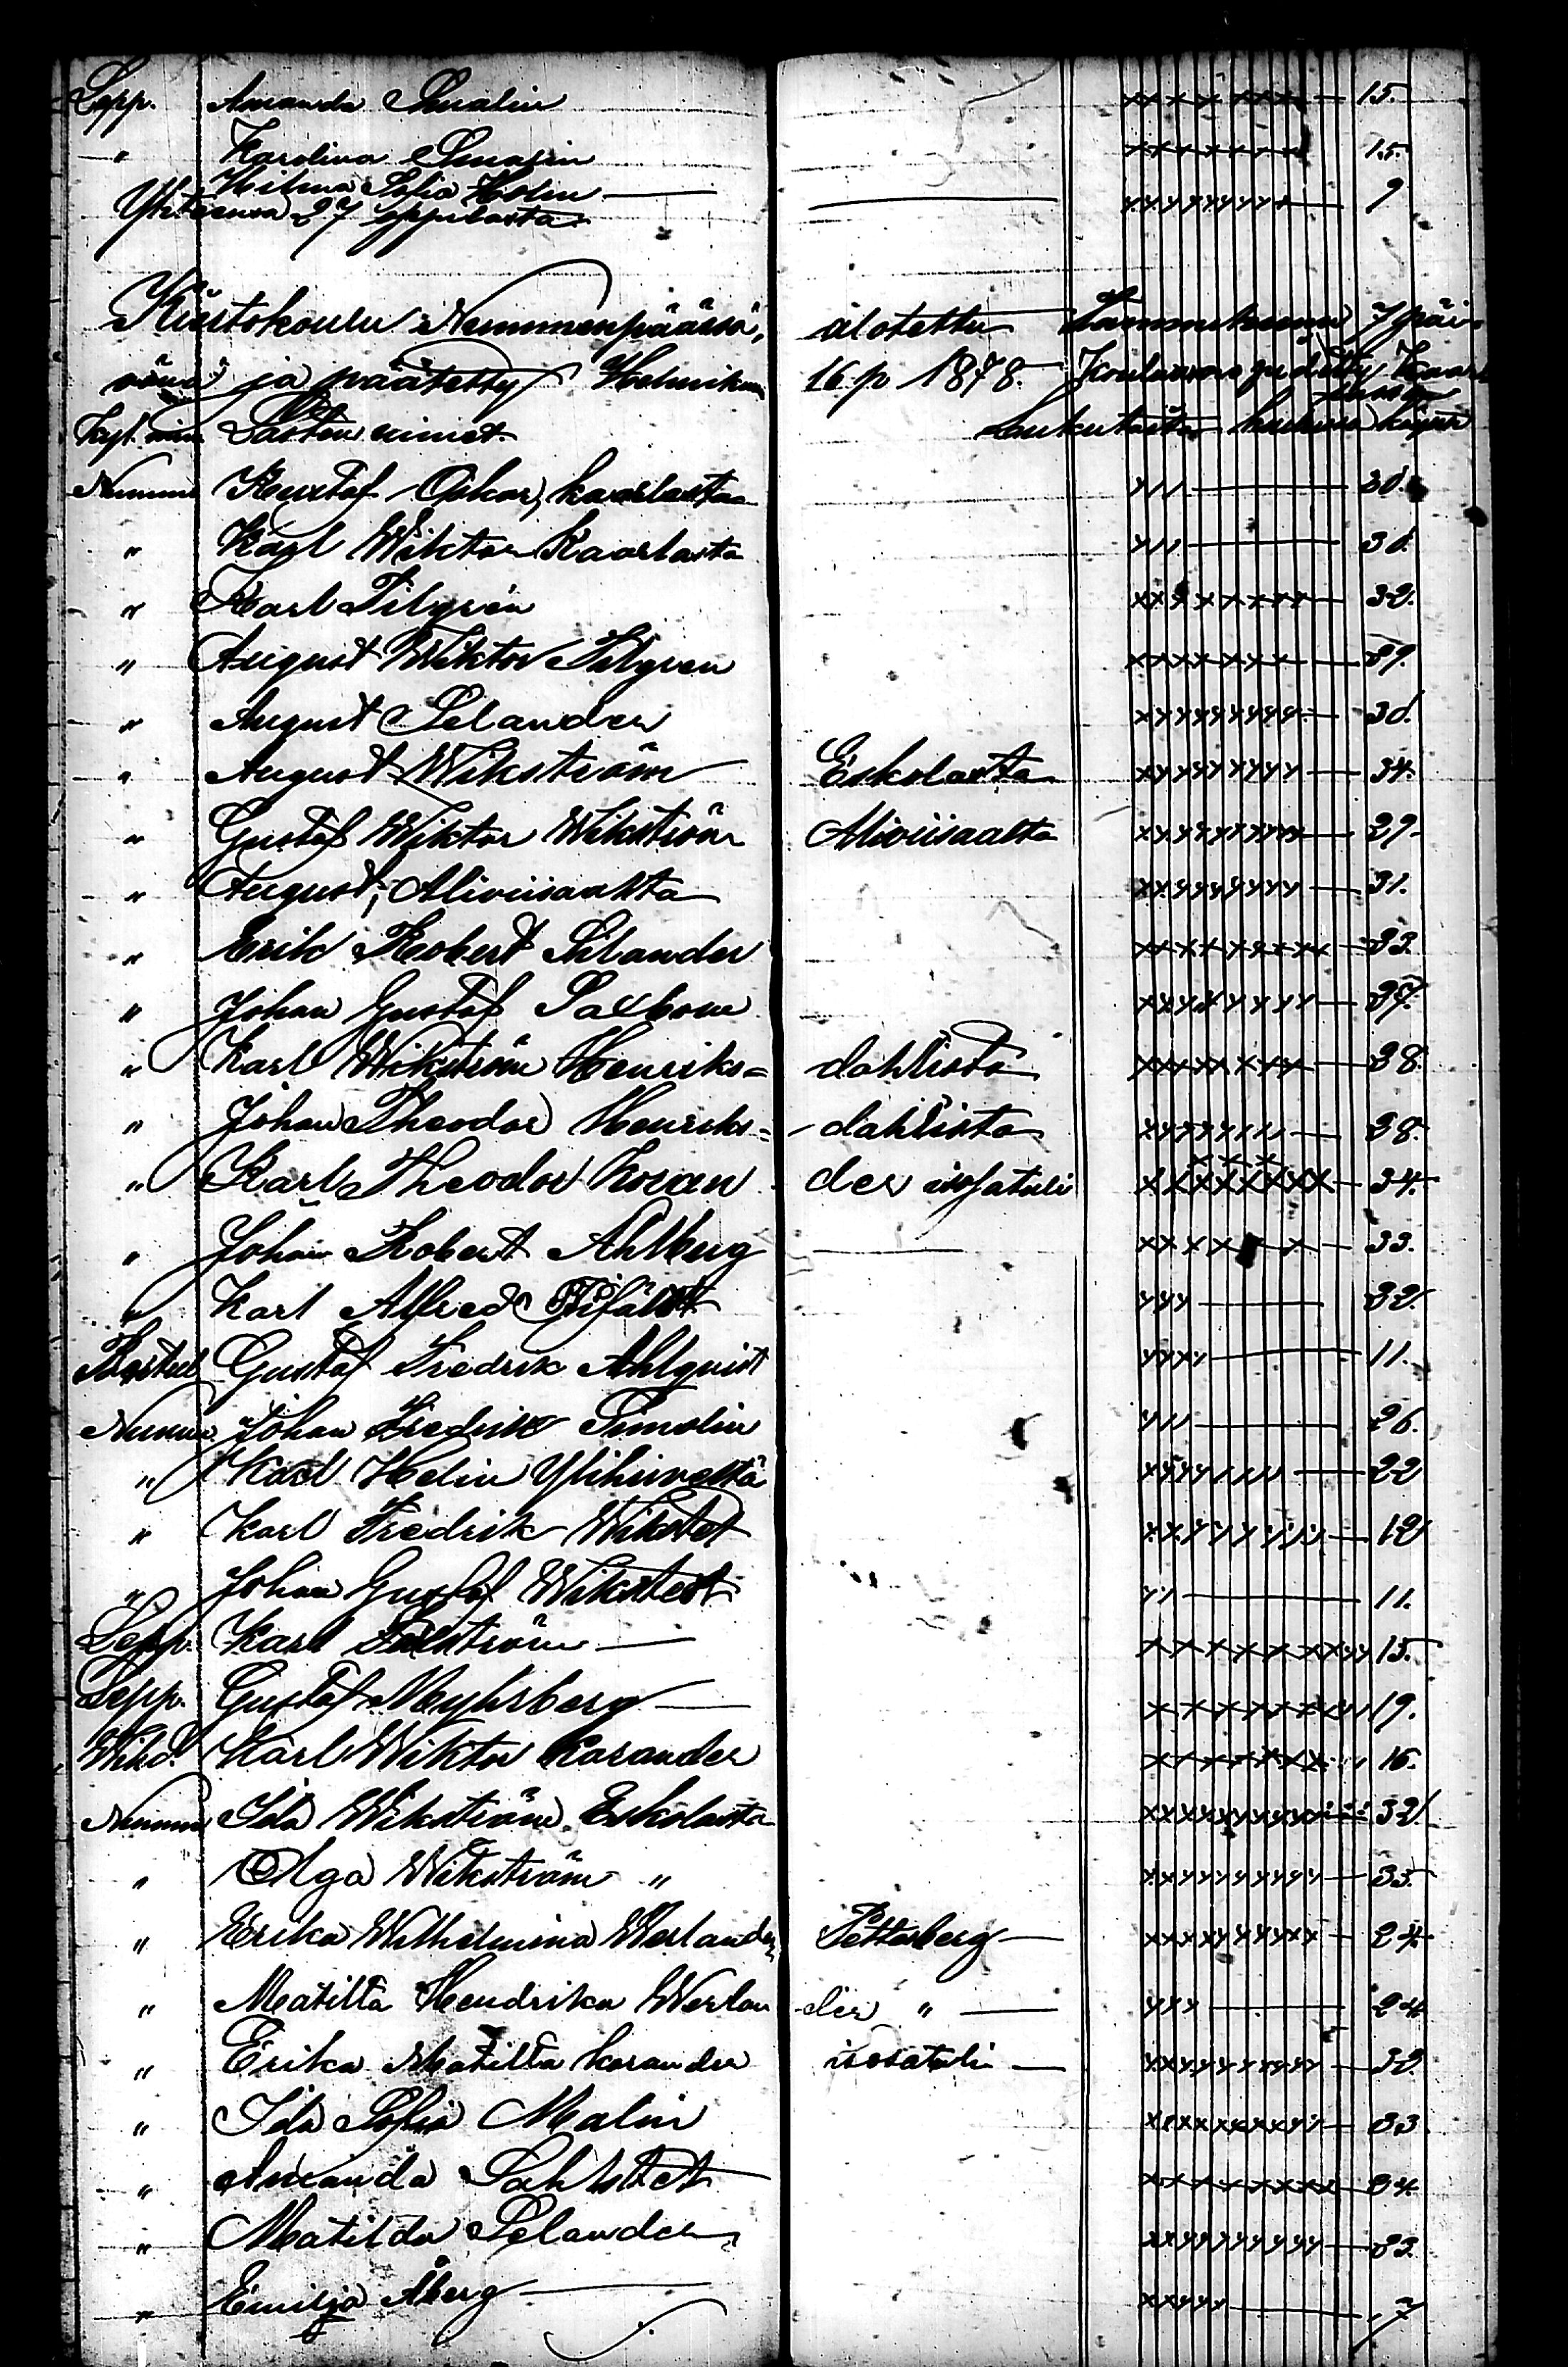 Sepp. Amanda Smalin 15.
" Karolina 15.
Hilma Sofia Holm 9
Yhteensä 27 oppilasta
Kiertokoulu Nummenpäässä, alotettu Tammikuun 7 päi-
vänä ja päätetty Helmikuun 16 p 1878.
Kyl. nim. Lasten nimet. Lukutaito
Nummi Gustaf Oskar, Kaarlasta 30.
" Karl Wiktor Kaarlasta 30.
" Karl Filgrén 32.
" August Wiktor Filgren 29.
" August Selander 30.
" August Wikström Eskolasta 34.
" Gustaf Wiktor Wikström Aliviisaalta 29.
" August, Aliviisaalta 31.
" Erik Robert Silander 33.
" Johan Gustaf Saxbom 37.
" Karl Wikström Henriks= dahlista 38.
" Johan Theodor Henriks= dahlista 38.
" Karl Theodor Koran der isosatuli 34.
" Johan Robert Ahlberg 33.
" Karl Alfred 32.
Gustaf Fredrik Ahlqvist 11.
Nummi. Johan Fredrik Simolin 26.
" Karl Helin Ylihirveltä 22
" Karl Fredrik Wikstet 12
" Johan Gustaf Wikstedt 11.
Sepp. Karl 15.
Sepp. Gustaf Myhrberg 19.
Karl Wiktor Korander 16.
Nummi Ida Wikström Eskolasta 32.
" Olga Wikström " 35.
" Erika Wilhelmina Werlander, Petterberg 24
" Matilta Hendrika Werlan der " 24
" Erika Matilta Korander isosatuli 32.
" Ida Sofia Malin 33
" Amanda Sahlstet 34.
" Matilda Selander 33.
" Emilja Åberg 7